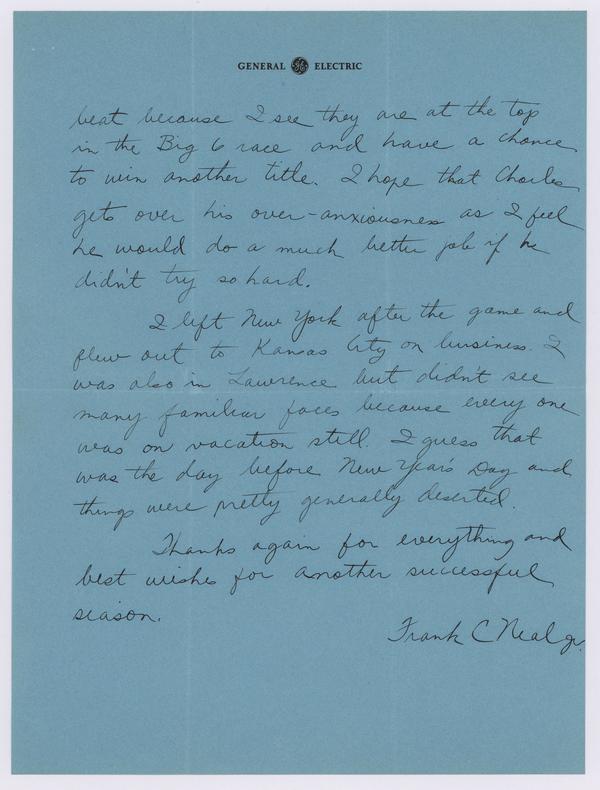 GENERAL GE ELECTRIC
beat because I see they are at the top
in the Big 6 race and have a chance
to win another title. I hope that Charles
gets over his over-anxiousness as I feel
he would do a much better job if he
didn't try so hard.
I left New York after the game and
flew out to Kansas City on business. I
was also in Lawrence but didn't see
many familiar faces because every one
was on vacation still. I guess that
was the day before New Year's Day and
things were pretty generally deserted.
Thanks again for everything and
best wishes for another successful
season.
Frank C Neal Jr.